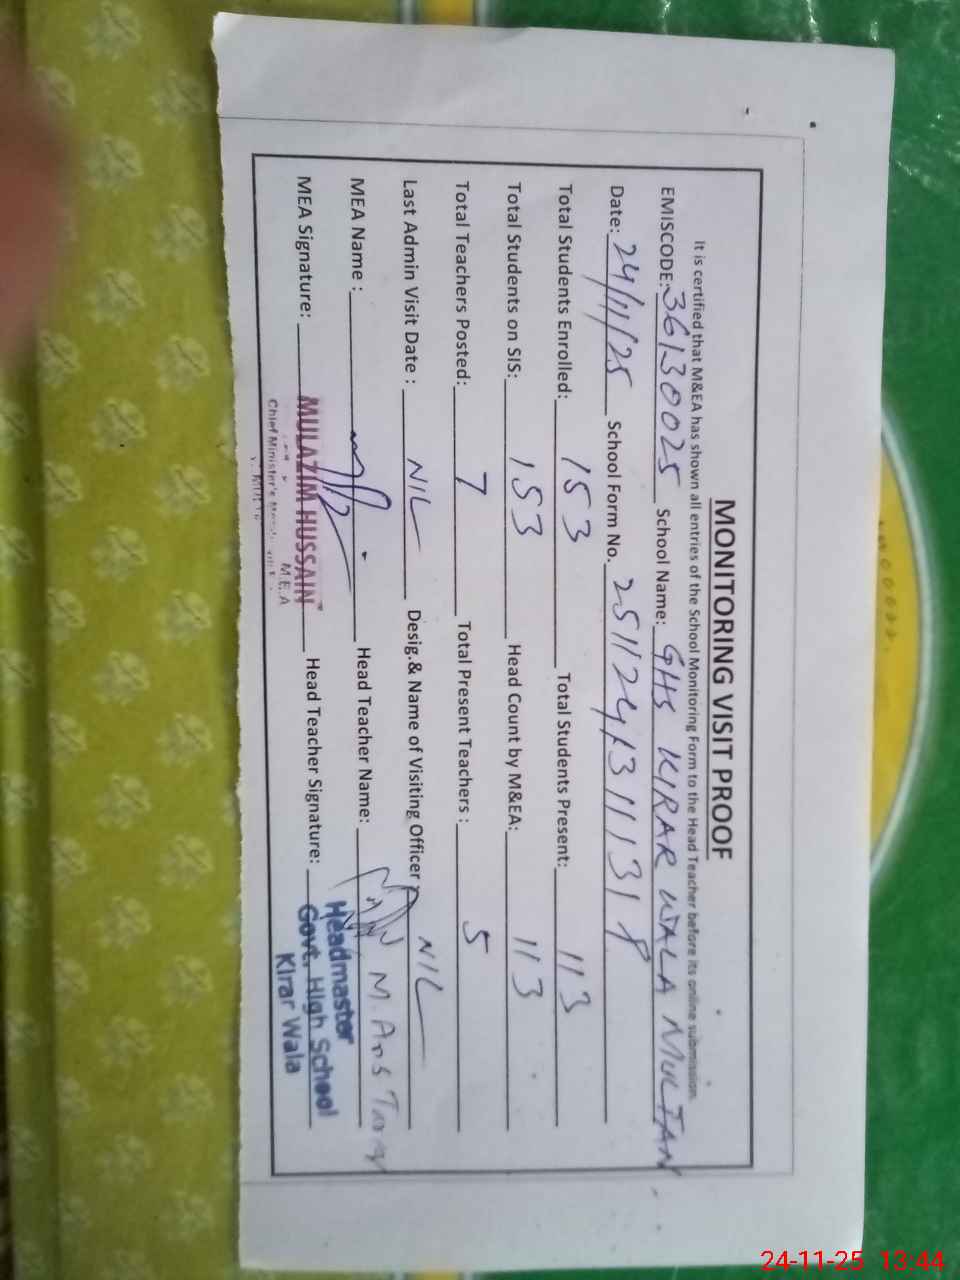 MONITORING VISIT PROOF
It is certified that M&EA has shown all entries of the School Monitoring Form to the Head Teacher before its online submission.
EMISCODE: 36130025 School Name: GHS KIRAR WALA MULTAN
Date: 24/11/25 School Form No. 25112413111318
Total Students Enrolled: 153 Total Students Present: 113
Total Students on SIS: 153 Head Count by M&EA: 113
Total Teachers Posted: 7 Total Present Teachers : 5
Last Admin Visit Date : NIL Desig.& Name of Visiting Officer NIL
MEA Name : Head Teacher Name: M.
MEA Signature: MULAZIM HUSSAIN Head Teacher Signature: Headmaster
M.E.A Govt. High School
Chief Minister's Kirar Wala
24-11-25 13:44